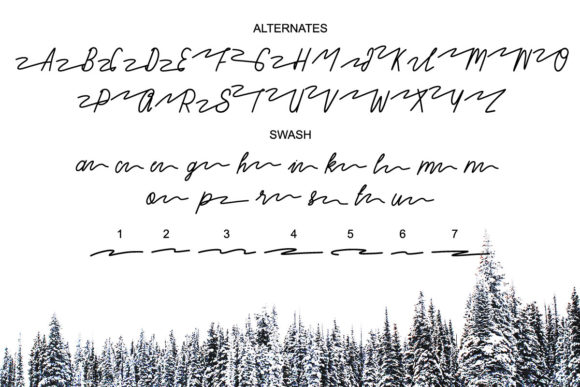 ALTERNATES
A B C D E F G H I J K L M N O
P Q R S T U V W X Y Z
SWASH
a c e g h i k l m n
o p r s t u
1 2 3 4 5 6 7